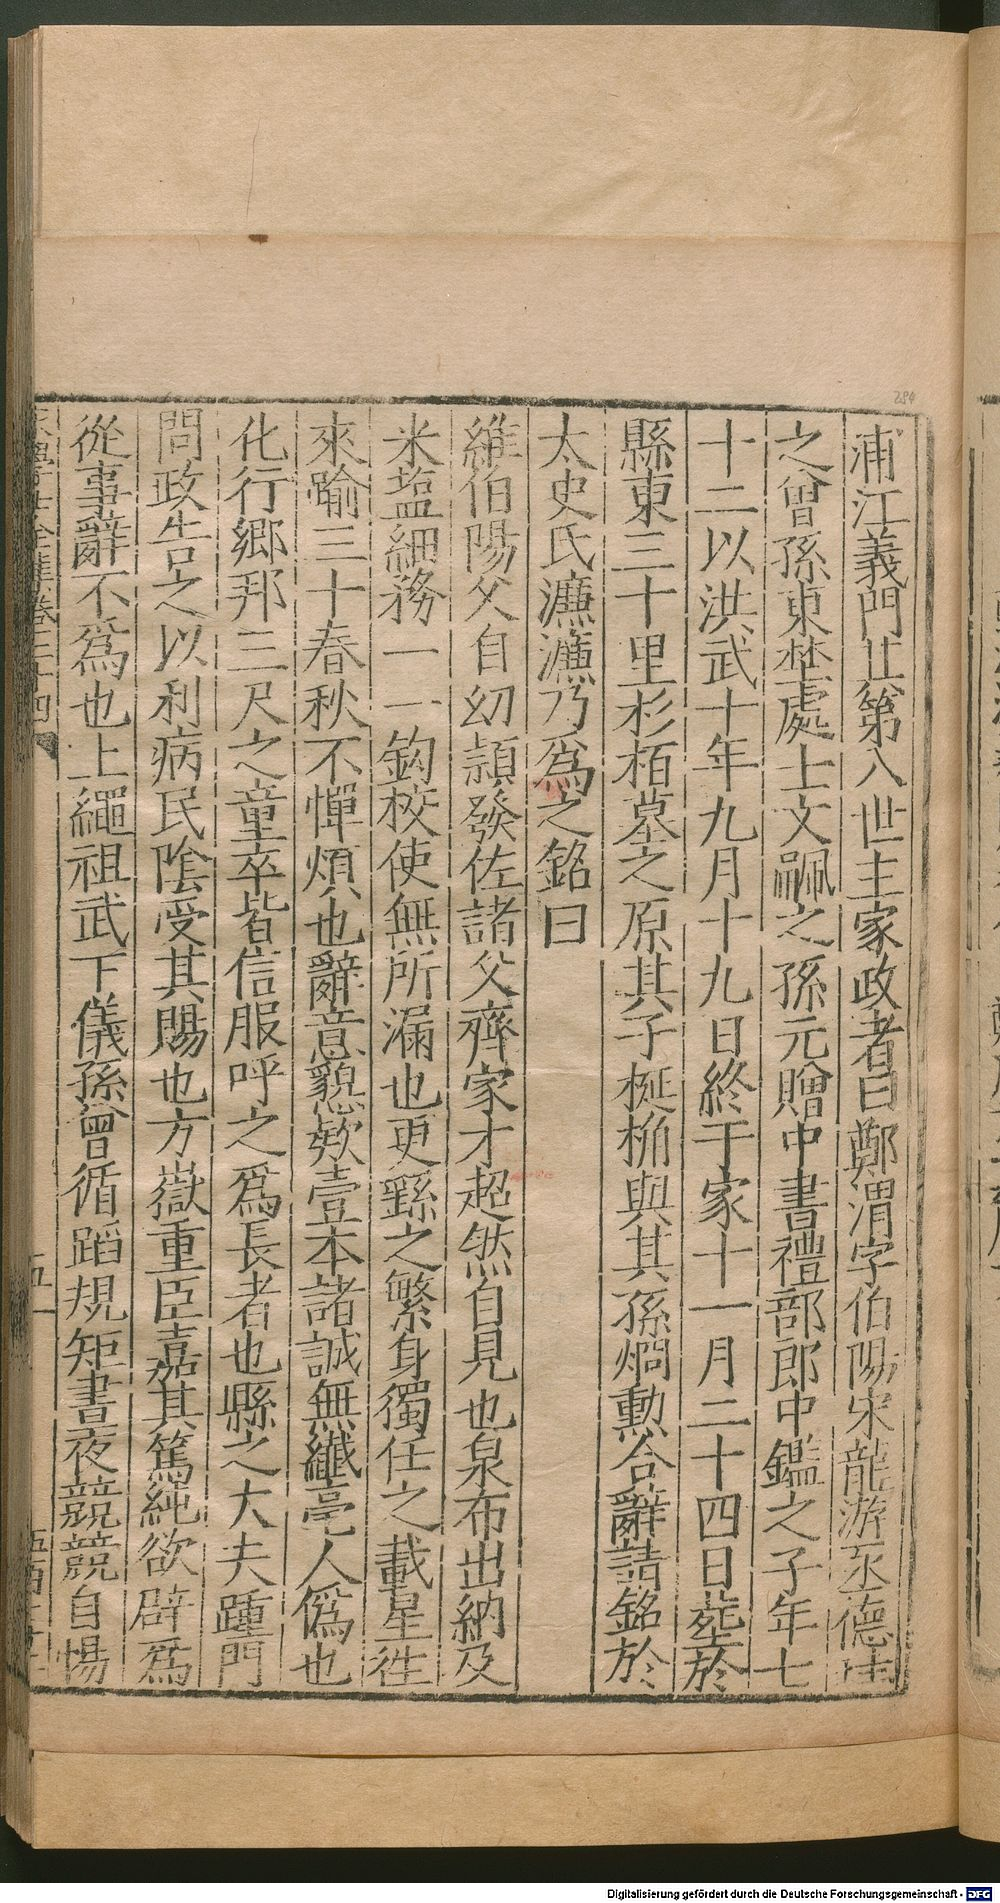 浦江義門廿第八世主家政者曰鄭渭字伯陽宋龍游丞德珪
之曾孫東埜處士文嗣之孫元贈中書禮部郎中鑑之子年七
十二以洪武十年九月十九日終于家十一月二十四日葬於
縣東三十里杉栢墓之原其子梴桷與其孫烱勳合辭請銘於
太史氏濂濂乃爲之銘曰
維伯陽父自幼頴發佐諸父齊家才超然自見也泉布出納及
米塩細務一一鈎校使無所漏也更繇之繁身獨任之載星徃
來踰三十春秋不憚煩也辭意懇欵壹本諸誠無纖毫人僞也
化行鄉邦三尺之童卒皆信服呼之爲長者也縣之大夫踵門
問政告之以利病民陰受其賜也方嶽重臣嘉其篤純欲辟爲
從事辭不爲也上繩祖武下儀孫曾循蹈規矩晝夜競競自惕
宋學士全集卷二十四
五十
284
Digitalisierung gefördert durch die Deutsche Forschungsgemeinschaft - DFG